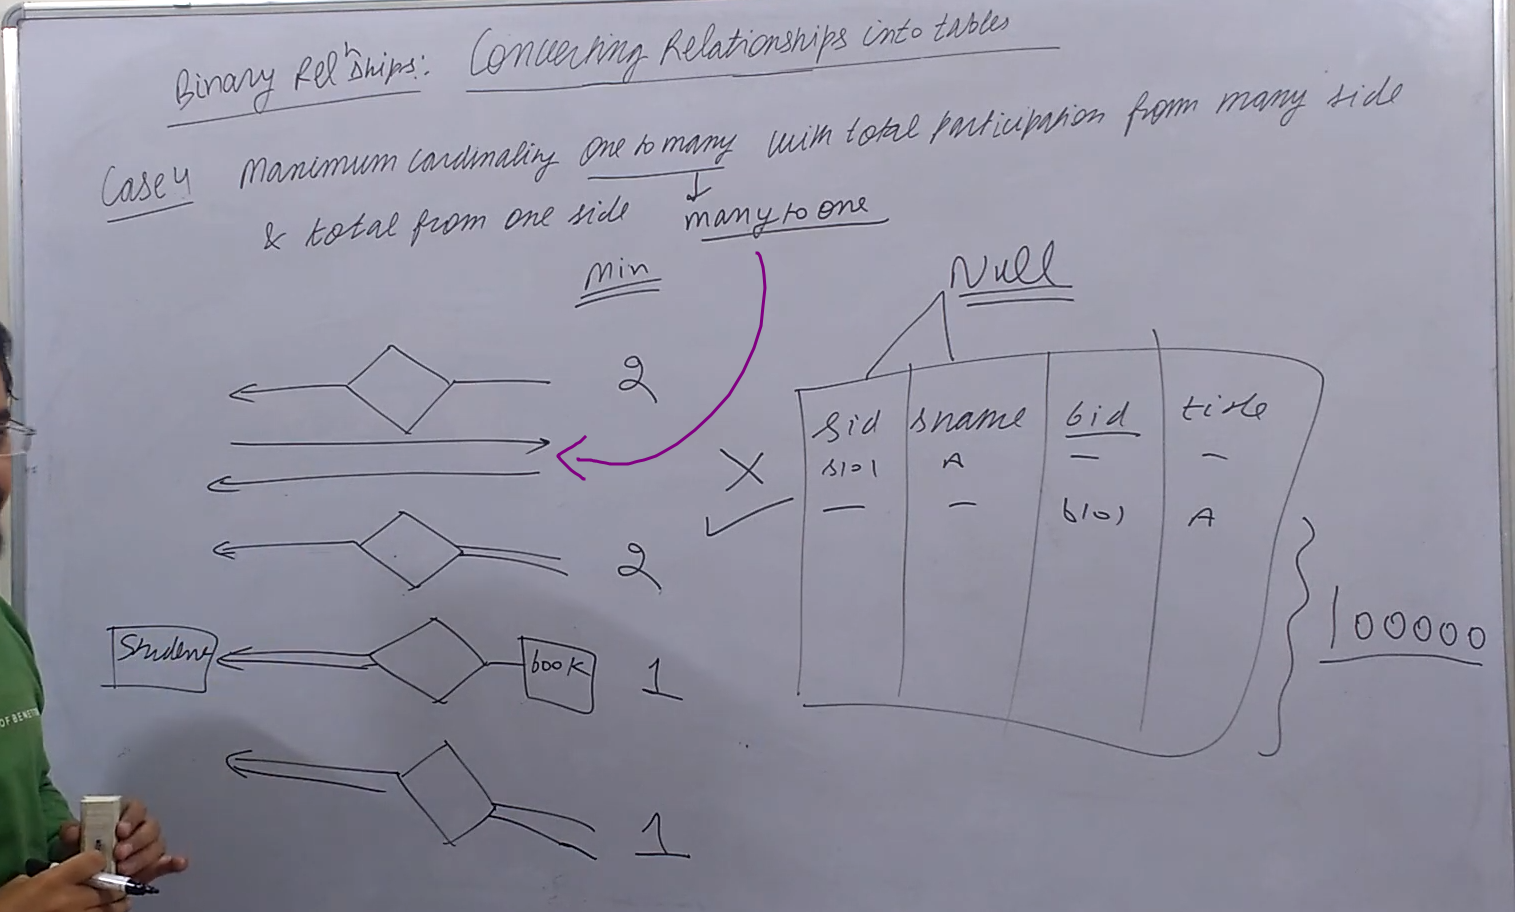 Binary Relnships: Converting Relationships into tables
Case 4 Maximum cardinality one to many with total participation from many side
& total from one side many to one
Min
Null
2
sid sname bid title
X s101 A — —
— — b101 A
2
Student book 1
100000
1
OF BENETT